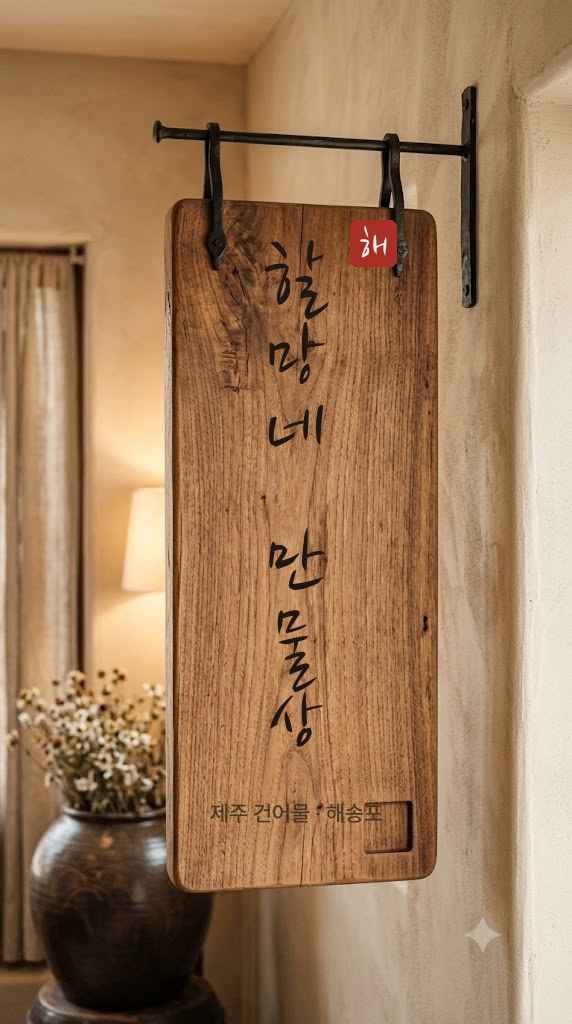 해
할망네 만물상
제주 건어물 · 해송포